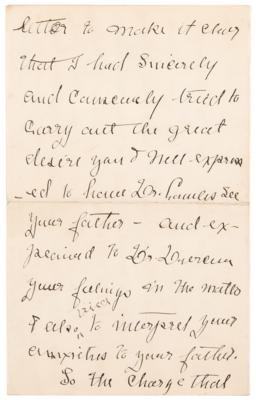 letter to make it clear
that I had sincerely
and earnestly tried to
carry out the great
desire you & Nell express
-ed to have Dr. see
your father - and ex-
plained to Dr.
your feelings in the matter
& also tried to interpret your
anxieties to your father.
So the charge that